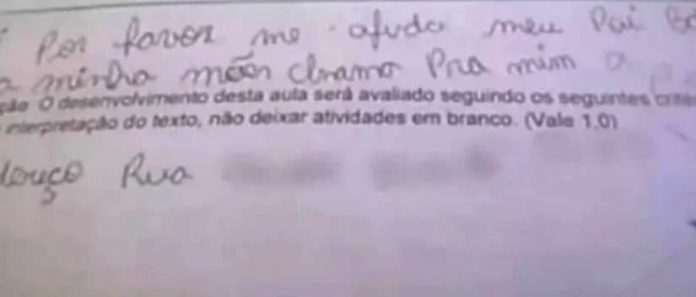 Por favor me ajuda meu Pai
a minha mãen chramo Pra mim a
ção O desenvolvimento desta aula será avaliado seguindo os seguintes crité
interpretação do texto, não deixar atividades em branco. (Vale 1,0)
Rua